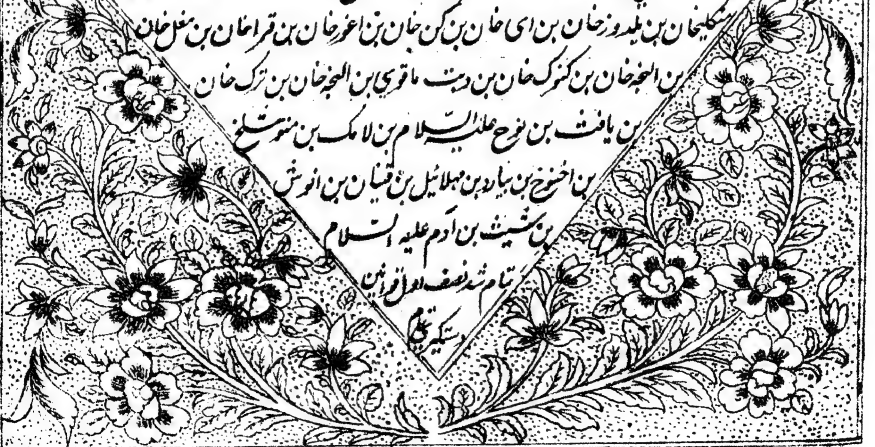 منگلیخان بن یلدوزخان بن ای خان بن کن خان بن اغورخان بن قراخان بن مغل خان
بن النجه خان بن کنوک خان بن دیب باقوی بن النجه خان بن ترک خان
بن یافث بن نوح علیه السلام بن لامک بن متوشلخ
بن اخنوخ بن یارد بن مهلائیل بن قنیان بن انوش
بن شیث بن آدم علیه السلام
تمام شد نصف اول